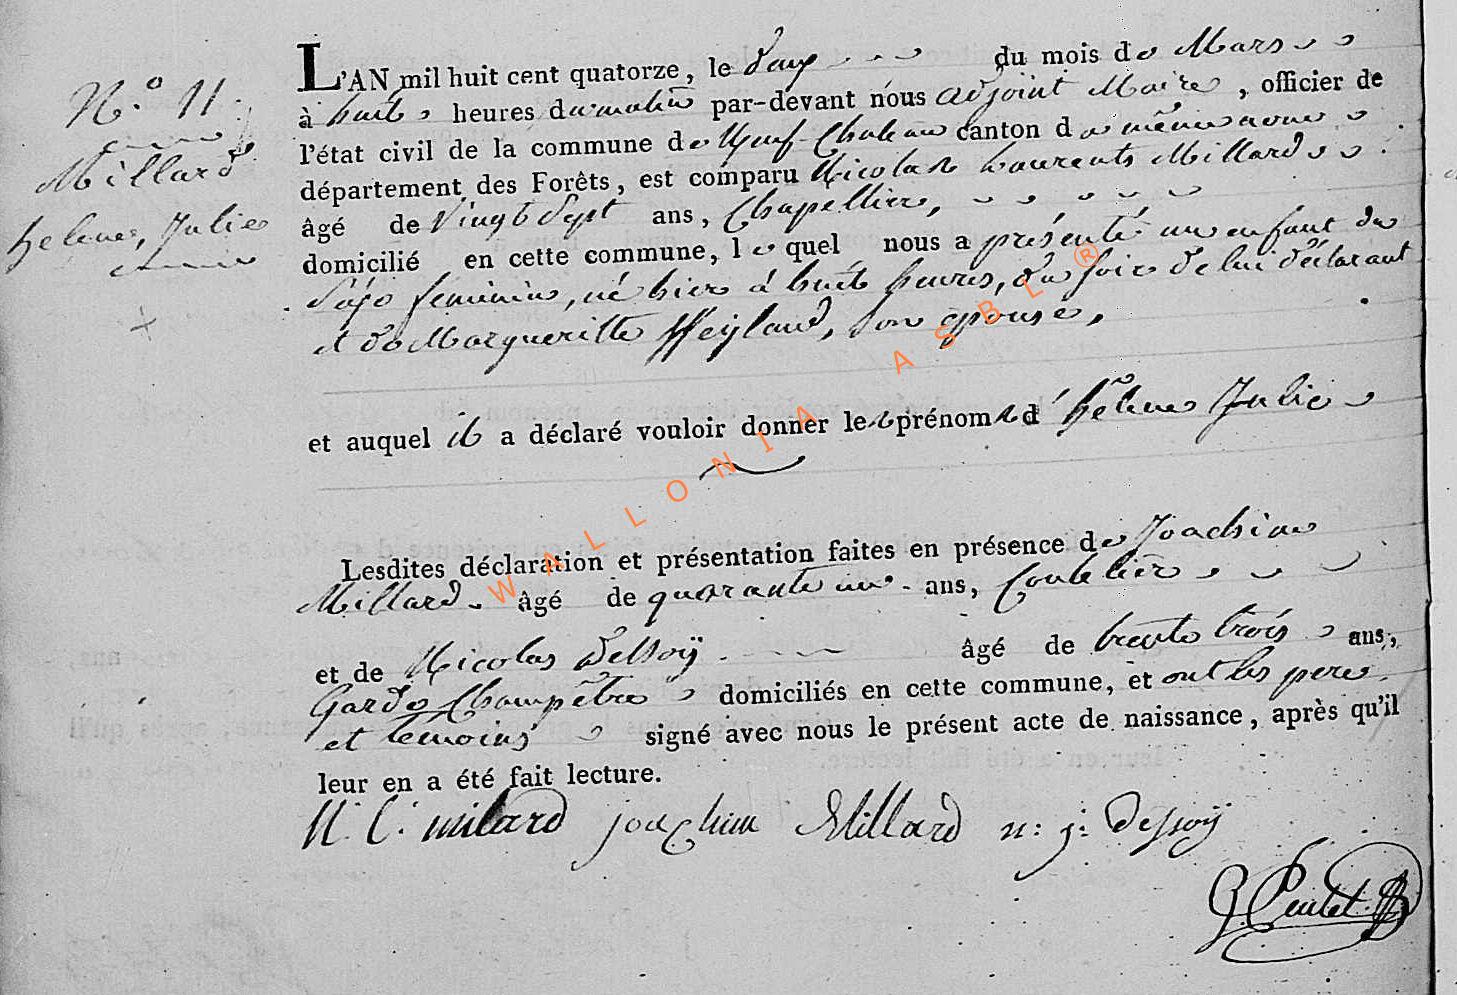 N.° 11.
Millard
helene, Julie
L'AN mil huit cent quatorze, le deux du mois de Mars
à huit heures du matin par-devant nous adjoint Maire, officier de
l'état civil de la commune de Neuf-Chateau canton du même nom
département des Forêts, est comparu Nicolas Laurents Millard
âgé de Vingt Sept ans, Chapellier,
domicilié en cette commune, lequel nous a présenté un enfant du
Sexe feminin, né hier à huit heures, du soir de lui déclarant
et de Margueritte Weyland, son epouse,
et auquel il a déclaré vouloir donner les prénoms d' hélene Julie
Lesdites déclaration et présentation faites en présence de Joachim
Millard âgé de quarante un ans, Coutelier
et de Nicolas Dessoÿ âgé de trente trois ans,
Garde Champêtre domiciliés en cette commune, et ont les pere
et temoins signé avec nous le présent acte de naissance, après qu'il
leur en a été fait lecture.
N. L. milard joachim Millard n: j: Dessoÿ
WALLONIA ASBL ®